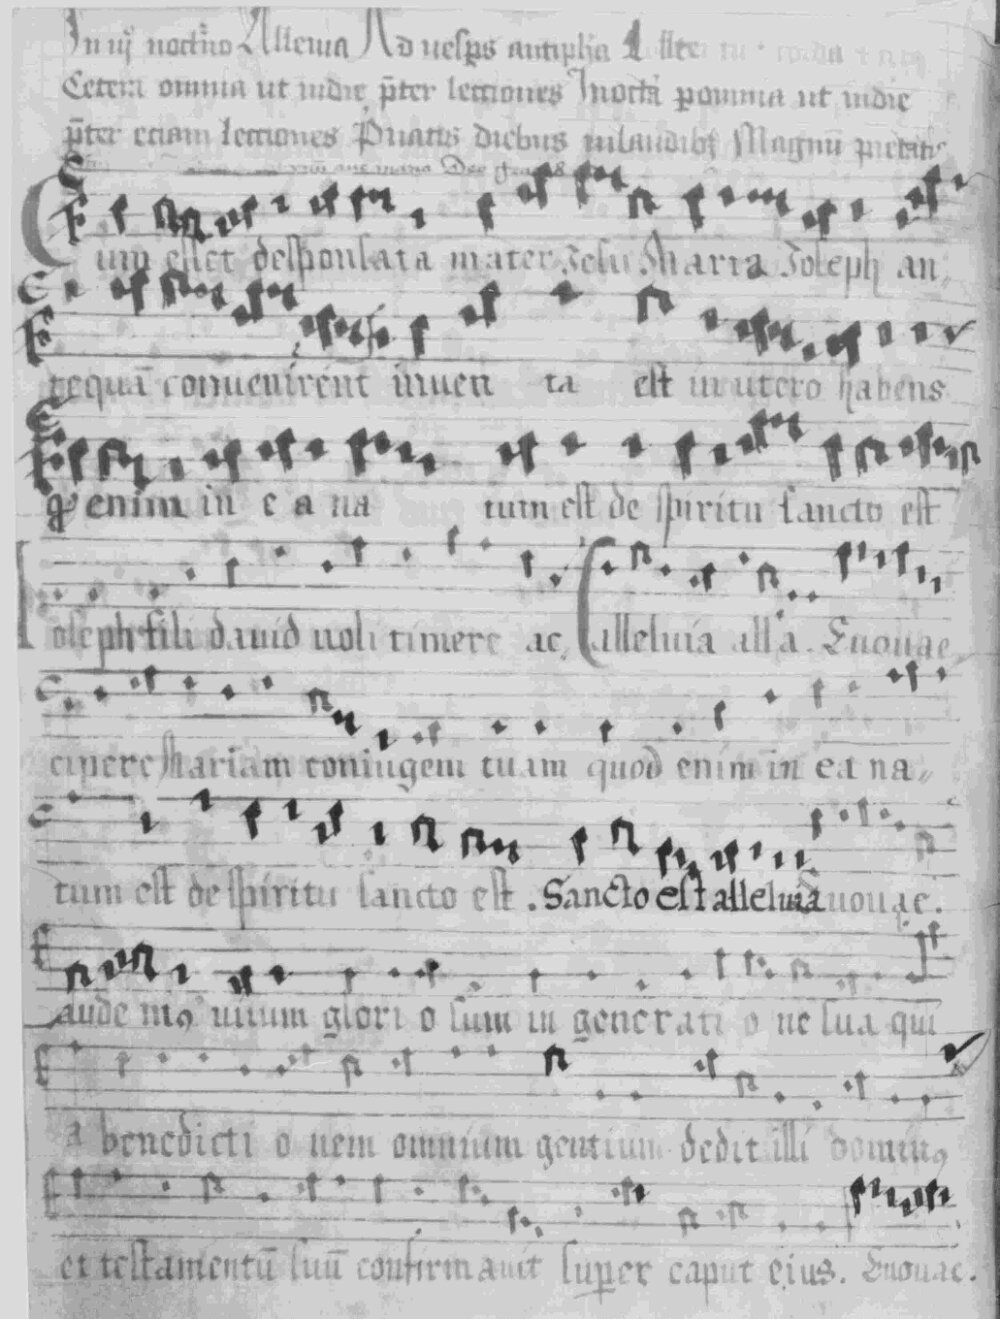 In iij noctno Alleluia Ad uesps antipha
Cetera omnia ut indie pter lectiones Inocta pomnia ut indie
pter eciam lectiones Puatis diebus inlaudibz Magnu pietatis
Cum esset desponsata mater Iesu Maria Ioseph an
tequā conuenirent inuen ta est in utero habens
qd enim in e a na tum est de spiritu sancto est
Ioseph fili dauid noli timere ac, alleluia alla. Euouae
cipere Mariam coniugem tuam quod enim in ea na
tum est de spiritu sancto est. Sancto est alleluia Euouae.
aude mus uirum glori o sum in generati o ne sua qui
a benedicti o nem omnium gentium dedit illi dominus
et testamentū suū confirmauit super caput eius. Euouae.